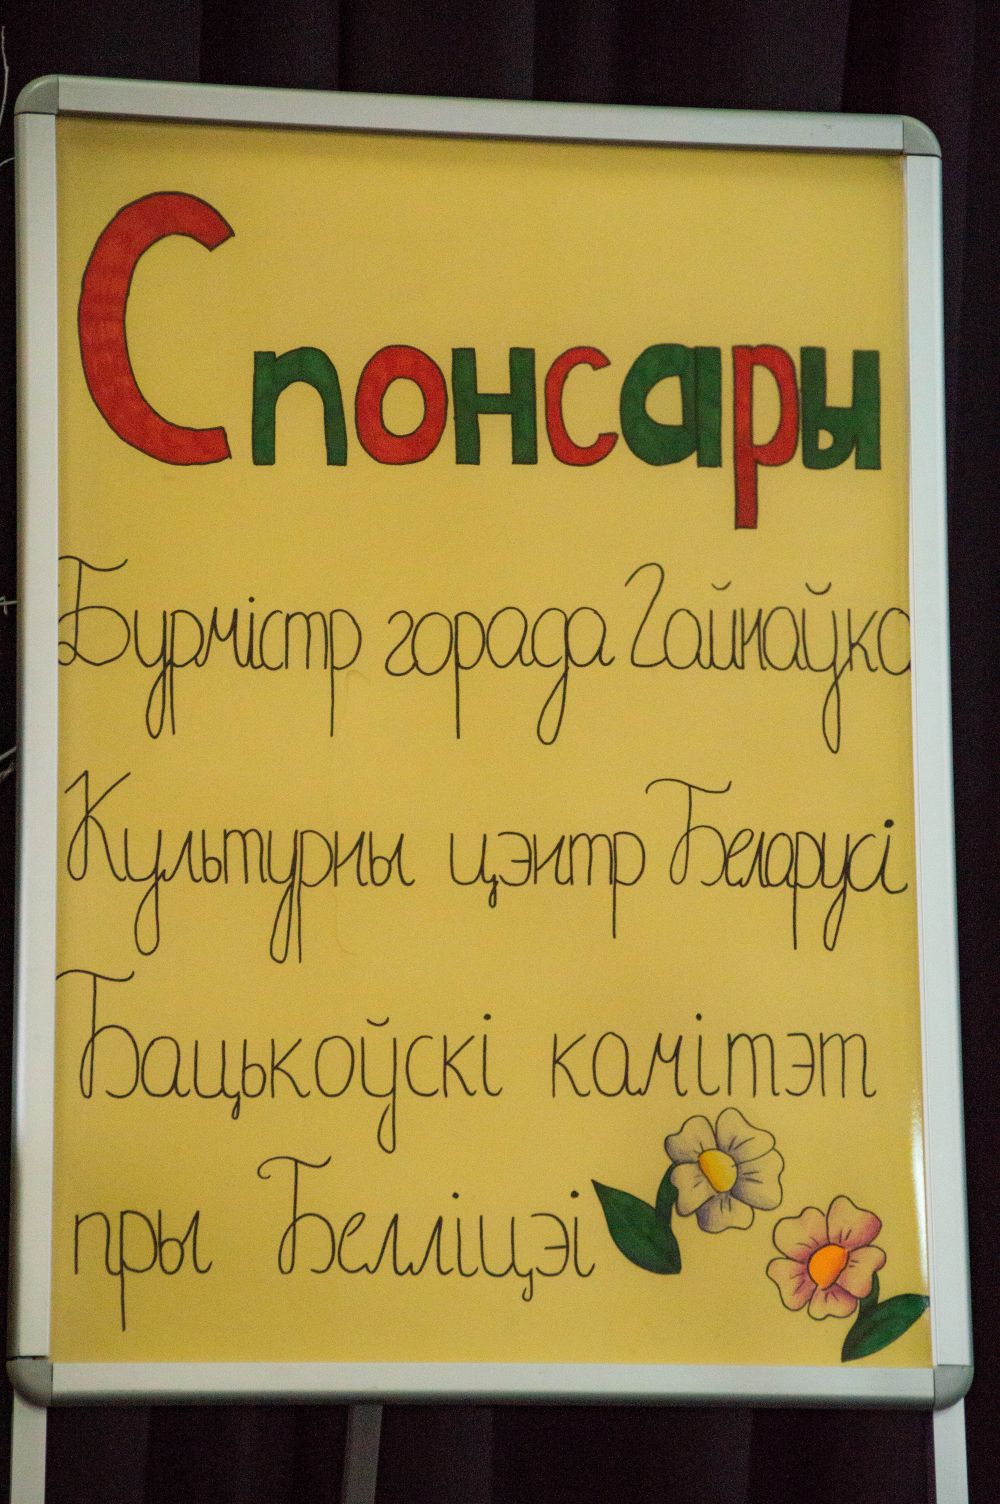 Спонсары
Бурмістр горада Гайнаўка
Культурны цэнтр Беларусі
Бацькоўскі камітэт
пры Белліцэі